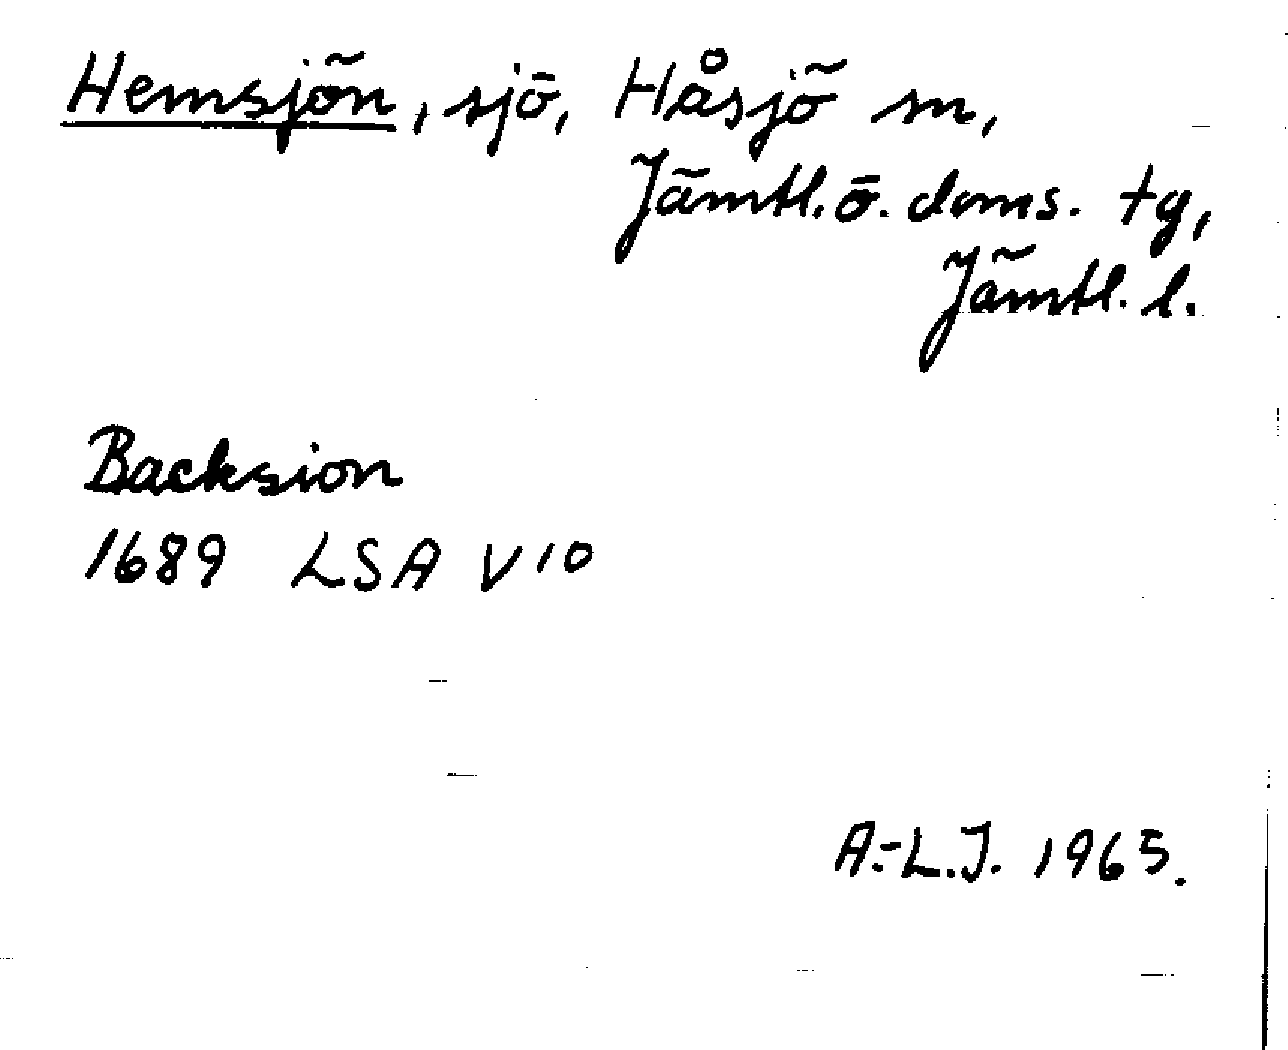 Hemsjön, sjö, Håsjö sn,
Jämtl. ö. doms. tg,
Jämtl. l.
Backsion
1689 LSA V 10
A.-L.J. 1965.